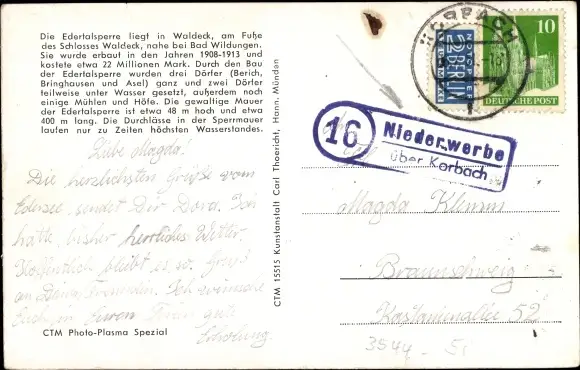 Die Edertalsperre liegt in Waldeck, am Fuße
des Schlosses Waldeck, nahe bei Bad Wildungen.
Sie wurde erbaut in den Jahren 1908-1913 und
kostete etwa 22 Millionen Mark. Durch den Bau
der Edertalsperre wurden drei Dörfer (Berich,
Bringhausen und Asel) ganz und zwei Dörfer
teilweise unter Wasser gesetzt, außerdem noch
einige Mühlen und Höfe. Die gewaltige Mauer
der Edertalsperre ist etwa 48 m hoch und etwa
400 m lang. Die Durchlässe in der Sperrmauer
laufen nur zu Zeiten höchsten Wasserstandes.
Liebe Magda!
Die herzlichsten Grüße vom
Edersee sendet Dir Dora. Ich
hatte bisher herrliches Wetter.
Hoffentlich bleibt es so. Gruß
an Deine Ich wünsche
Euch gute
Erholung.
CTM Photo-Plasma Spezial
CTM 15515 Kunstanstalt Carl Thoericht, Hann. Münden
KORBACH
NOTOPFER
2 BERLIN
STEUERMARKE
10
DEUTSCHE POST
16
Niederwerbe
über Korbach
Magda Klemm
Braunschweig
Kastanienallee 52
3544